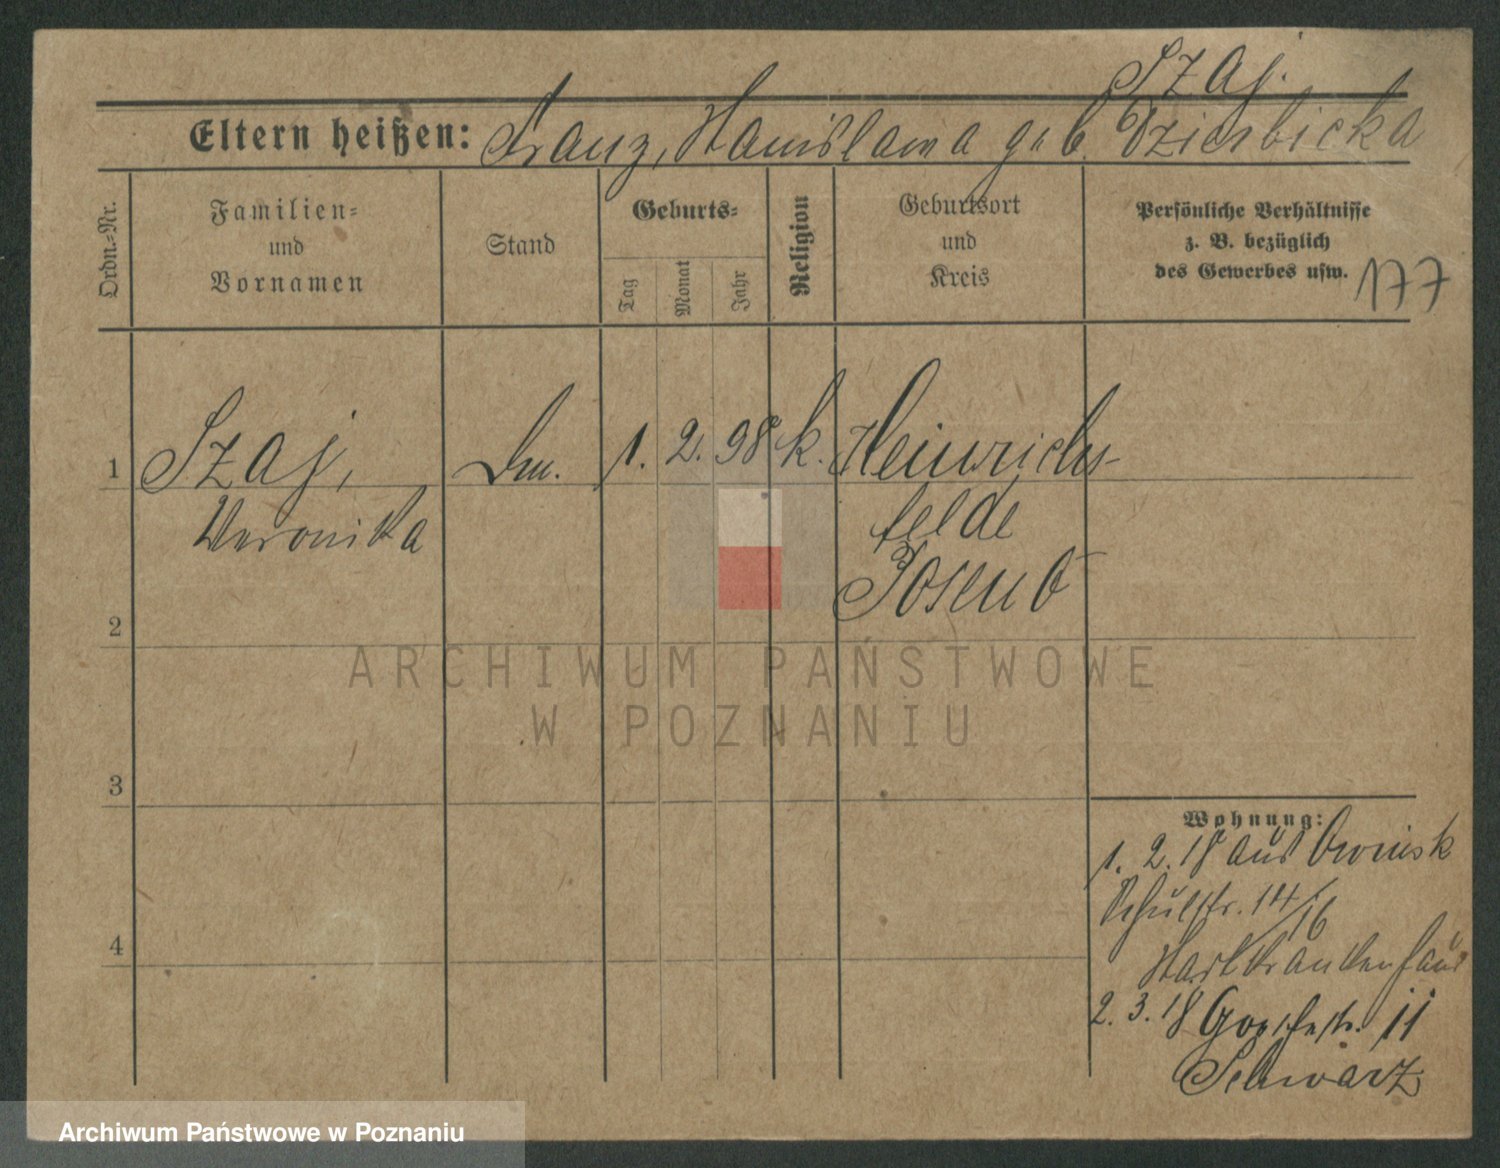 Szaj.
Eltern heißen: Franz, Stanislawa geb. Dzierbicka
Ordn.-Nr.
Familien-
und
Vornamen
Stand
Geburts-
Tag
Monat
Jahr
Religion
Geburtsort
und
Kreis
Persönliche Verhältnisse
z. B. bezüglich
des Gewerbes usw.
177
1 Szaj, 1. 2. 98 k. Heinrichs-
Veronika felde
Posen O
2
3
4
Wohnung:
1. 2. 18 aus Owinsk
Schulstr. 14/16
Stadtkrankenhaus
2. 3. 18 11
Schwarz
ARCHIWUM PAŃSTWOWE
W POZNANIU
Archiwum Państwowe w Poznaniu